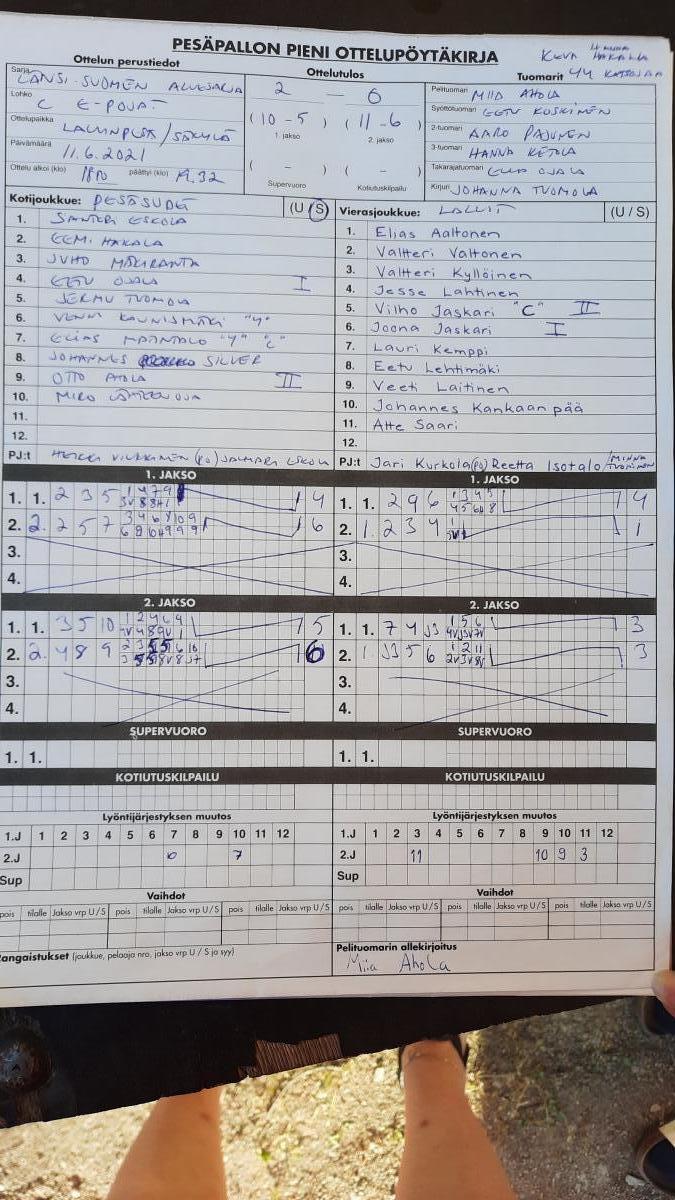 PESÄPALLON PIENI OTTELUPÖYTÄKIRJA
HAKALA
Ottelun perustiedot
Ottelutulos
Tuomarit 44 KATSOJAA
Sarja LÄNSI-SUOMEN ALUESARJA
2 — 6
Pelituomari MIIA AHOLA
Lohko C E-POJAT
(10-5) (11-6)
Syöttötuomari EETU KOSKINEN
1. jakso 2. jakso
Ottelupaikka LAUINPESÄ/SÄKYLÄ
2-tuomari AARO PAJUNEN
Päivämäärä 11.6.2021
3-tuomari HANNA KETOLA
( - ) ( - )
Takarajatuomari OJALA
Ottelu alkoi (klo) 18.00 päättyi (klo) 19.32
Supervuoro Kotiutuskilpailu
Kirjuri JOHANNA TUOMOLA
Kotijoukkue: PESÄSUDET (U/S)
Vierasjoukkue: LALLIT (U / S)
1. SANTERI ESKOLA
2. EEMI HAKALA
3. JUHO MÄKIRANTA
4. EETU OJALA I
5. JERMU TUOMOLA
6. VENNI KAUNISMÄKI "Y"
7. ELIAS MÄÄNTALO "Y" "C"
8. JOHANNES SILVER
9. OTTO AHOLA II
10. MIRO LÄHTEENOJA
11.
12.
1. Elias Aaltonen
2. Valtteri Valtonen
3. Valtteri Kyllöinen
4. Jesse Lahtinen
5. Vilho Jaskari "C" II
6. Joona Jaskari I
7. Lauri Kemppi
8. Eetu Lehtimäki
9. Veeti Laitinen
10. Johannes Kankaanpää
11. Atte Saari
12.
PJ:t HEIKKI VILKKINEN (PJ) JALMARI ESKOLA
PJ:t Jari Kurkola (PJ) Reetta Isotalo / MINNA TUOMINEN
1. JAKSO
1. JAKSO
1. 1. 2 3 5 1 4 7 9 4
2. 2. 2 5 7 3 4 6 8 10 9 6
3.
4.
1. 1. 2 9 6 1 3 4 5 4
2. 1. 2 3 4 1 1
3.
4.
2. JAKSO
2. JAKSO
1. 1. 3 5 10 1 2 4 6 9 5
2. 2. 4 8 9 6
3.
4.
1. 1. 7 4 J3 1 5 6 3
2. 1. J3 5 6 1 2 11 3
3.
4.
SUPERVUORO
SUPERVUORO
1. 1.
1. 1.
KOTIUTUSKILPAILU
KOTIUTUSKILPAILU
Lyöntijärjestyksen muutos
Lyöntijärjestyksen muutos
1.J 1 2 3 4 5 6 7 8 9 10 11 12
1.J 1 2 3 4 5 6 7 8 9 10 11 12
2.J 10 7
2.J 11 10 9 3
Sup
Sup
Vaihdot
Vaihdot
pois tilalle Jakso vrp U/S pois tilalle Jakso vrp U/S pois tilalle Jakso vrp U/S
pois tilalle Jakso vrp U/S pois tilalle Jakso vrp U/S pois tilalle Jakso vrp U/S
Rangaistukset (joukkue, pelaaja nro, jakso vrp U / S ja syy)
Pelituomarin allekirjoitus
Miia Ahola